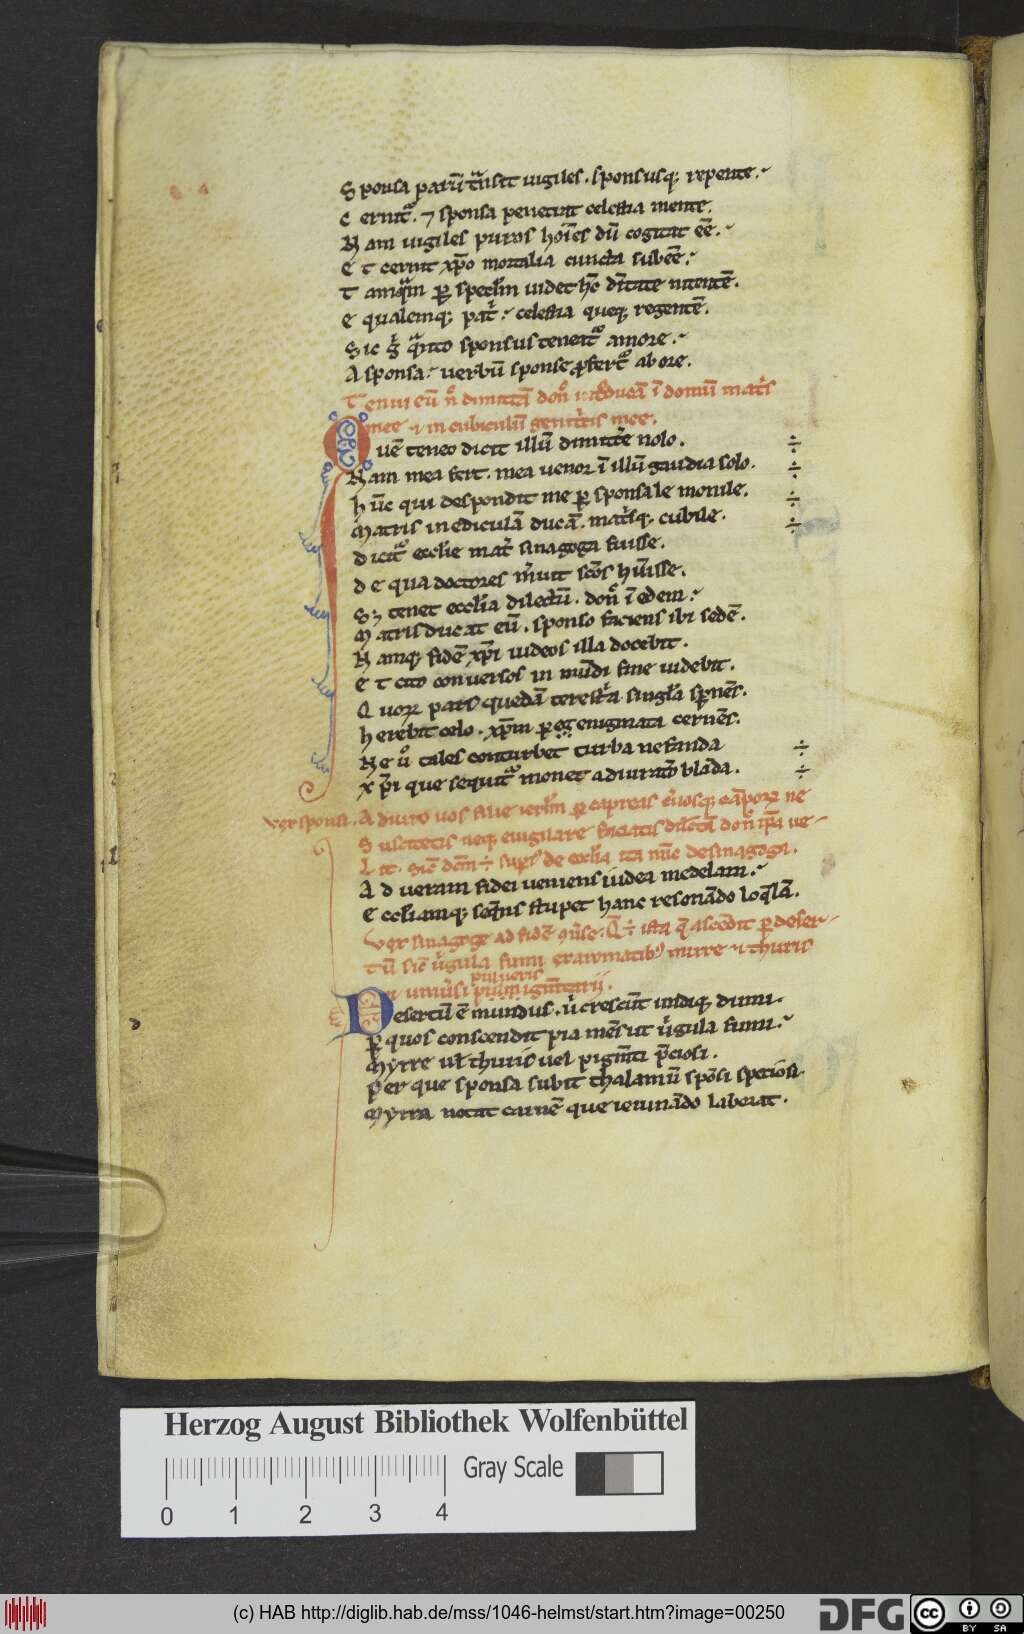 Sponsa parū t̄nsit uigiles. sponsusq; repente.
Cernit᷑. ⁊ sponsa penetrat celestia mente.
Nam uigiles puros hoīes dū cogitat eē.
Et cernit xp̄o mortalia cuncta subeē.
Tamq̄m ꝑ specl̄m uidet hc̄ d̄itate nitentē.
E qualemq; pat̄r celestia queq; regentē.
Sic g̊ q̄nto sponsus tenet᷑ amore.
A sponsa uerbū sponse ꝓfert᷑ ab ore.
Tenui eū n̄ dimittā don̄ īt̄ducā ī domū mat̄s
mee ⁊ in cubiculum genit̄cis mee.
Quē teneo dicit illū dimitt̄e nolo.
Nam mea fert. mea uenor ī illū gaudia solo.
hūc qui despondit me ꝑ sponsale monile.
Matris in ediculā ducā. mat̄sq; cubile.
dicit᷑ eccl̄ie mat̄ sinagoga fuisse.
de qua doctores m̄uit sc̄os h̄uisse.
Sꝫ tenet eccl̄ia dilectū. don̄ ī edem
Matris ducat eū. sponso faciens ibi sedē.
Namq; fidē xp̄i iudeos illa docebit.
Et cito conuersos in mūdi fine uidebit.
Quoꝝ pars quedā terest̄a singl̄a sp̄nēs.
herebit celo. xp̄m ꝑ egenigmata cernēs.
Ne u̇ tales conturbet turba nefanda
xp̄i que sequit᷑ monet adiurat᷑o blāda.
ver sponsi. Adiuro uos filie ierl̄m ꝑ capreas c̄uosq; cāpoꝝ ne
Suscitetis neq; euigilare faciatis dilc̄tā don̄ ip̄a ue-
Lit. Sic̄ dc̄m ÷ sup̄ de eccl̄ia ita nūc de sinagoga.
Ad ueram fidei ueniens iudea medelam.
Eccl̄iamq; seq̄ns stupet hanc resonādo loq̄lā.
Ver sinagoge ad fidē ꝯūse. Q̄ ÷ ista q̄ ascēdit ꝑ deser-
tū sic̄ ūgula fumi ex aromatibꝰ mirre ⁊ thuris
pulueris
⁊ uniūsi pulu igm̄tarii.
Desertū ē mundus. ū crescūt undiq; dumi.
ꝑ quos conscendit pia mēs ut ūgula fumi.
Myrre ul̄ thuris uel pigm̄ti p̄ciosi.
Per que sponsa subit thalamū spōsi speciosi.
Myrra notat carnē que ieiunādo laborat.
Herzog August Bibliothek Wolfenbüttel
Gray Scale
0 1 2 3 4
(c) HAB http://diglib.hab.de/mss/1046-helmst/start.htm?image=00250
DFG
cc BY SA